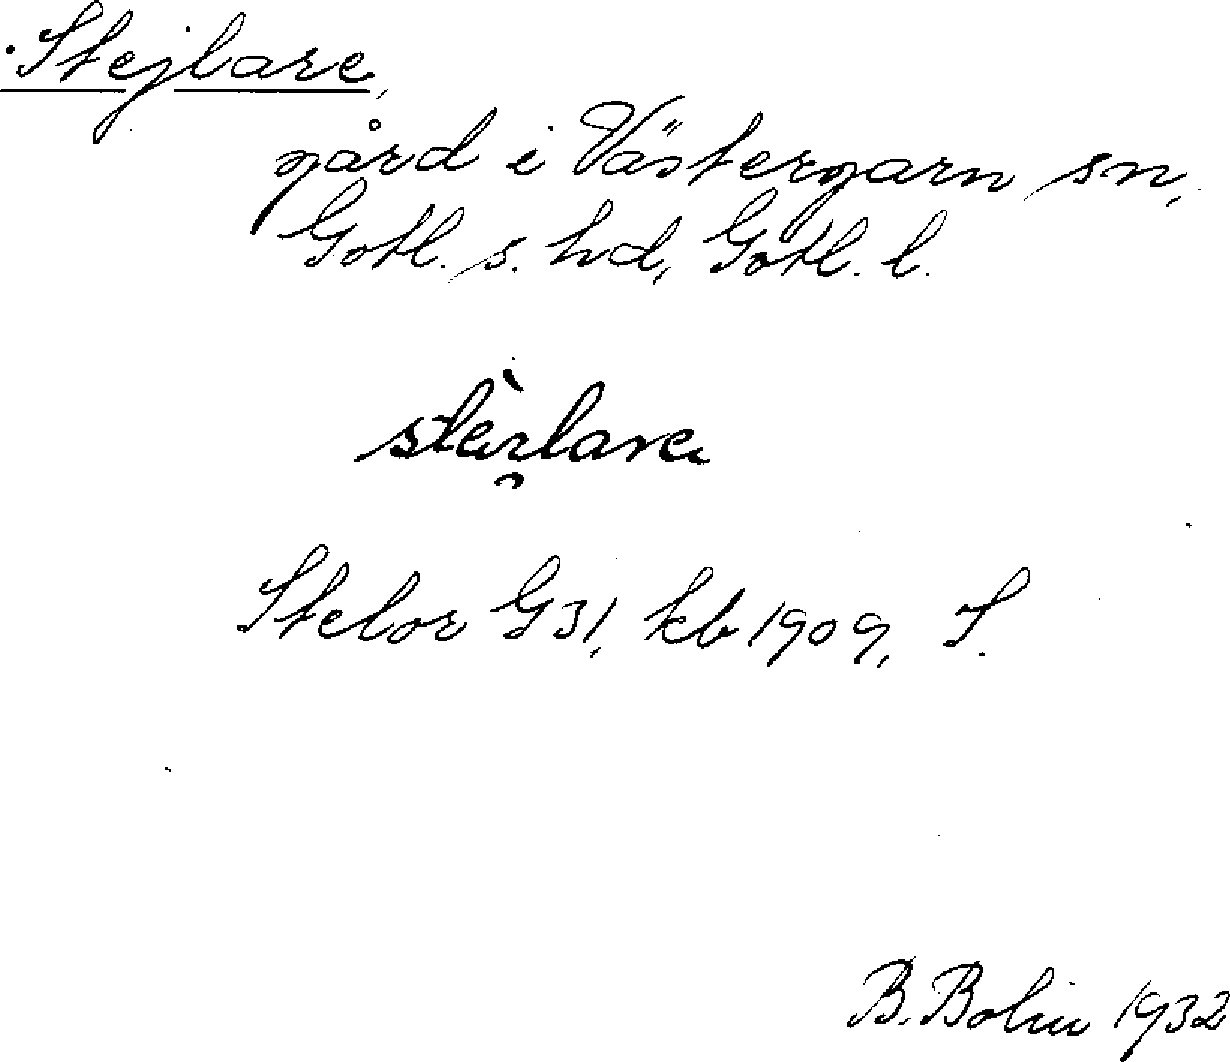 Stejlare,
gård i Västergarn sn,
Gotl. s. hd, Gotl. l.
Stelor G 31, kb 1909, S.
B. Bolin 1932